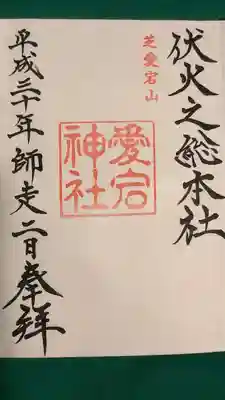 伏火之総本社
芝愛宕山
愛宕神社
平成三十年師走二日奉拝